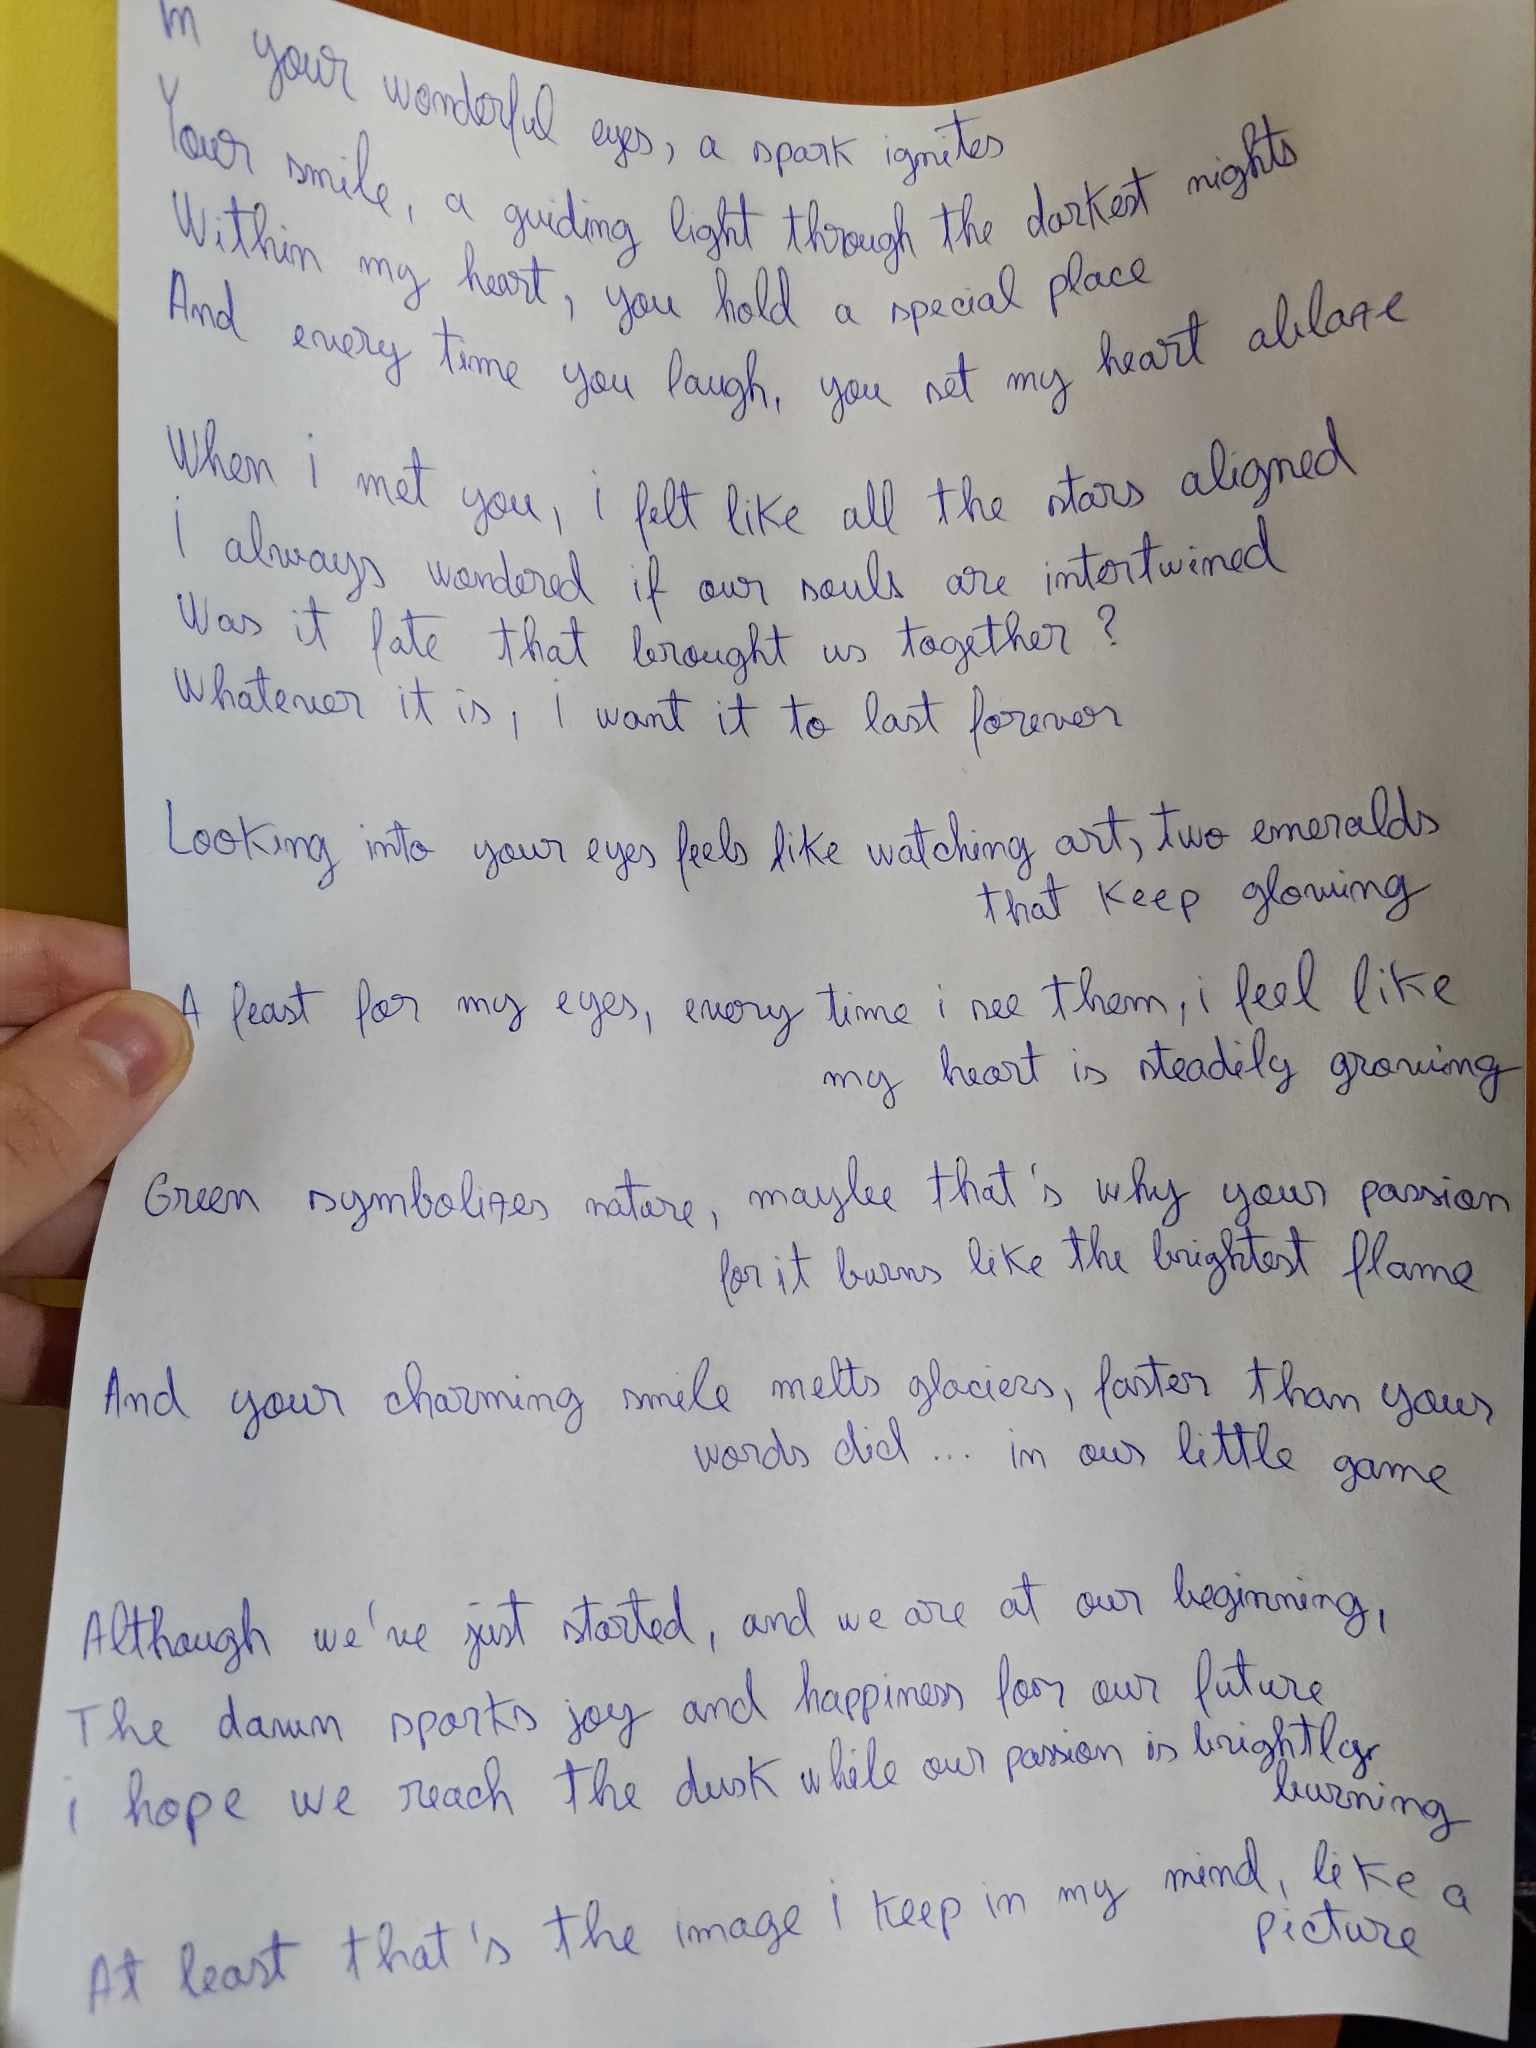 In your wonderful eyes, a spark ignites
Your smile, a guiding light through the darkest nights
Within my heart, you hold a special place
And every time you laugh, you set my heart ablaze
When i met you, i felt like all the stars aligned
i always wondered if our souls are intertwined
Was it fate that brought us together?
Whatever it is, i want it to last forever
Looking into your eyes feels like watching art, two emeralds
that keep glowing
A feast for my eyes, every time i see them, i feel like
my heart is steadily growing
Green symbolizes nature, maybe that's why your passion
for it burns like the brightest flame
And your charming smile melts glaciers, faster than yours
words did... in our little game
Although we've just started, and we are at our beginning,
The dawn sparks joy and happiness for our future
i hope we reach the dusk while our passion is brightly
burning
At least that's the image i keep in my mind, like a
picture